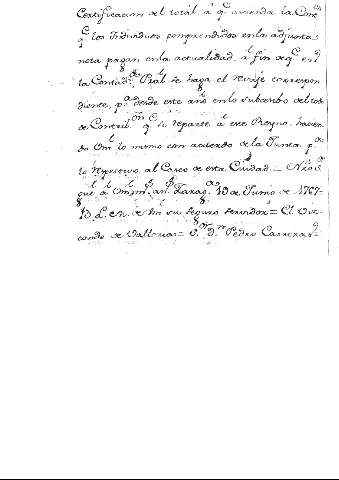 Certificacion del total a q.e ascienda la Ome
q.e los Individuos comprendidos en la adjunta
nota pagan en la actualidad, a fin de q.e en
la Contad.a Pral. se haga el revaje correspon
diente, p.a desde este año en lo subcesibo del todo
de Contrib.on q.e se reparte a ese Pueyno, hacien
do Om.l lo mismo con acuerdo de la Junta p.a
lo respectivo al Casco de esta Ciudad. = Nro S.r
gue a Om m.s an.s Zarag.a 19 de Junio de 1767
B. L. m. de Om su seguro servidor = El Viz
conde de Valloria = S.or D.n Pedro Carreras